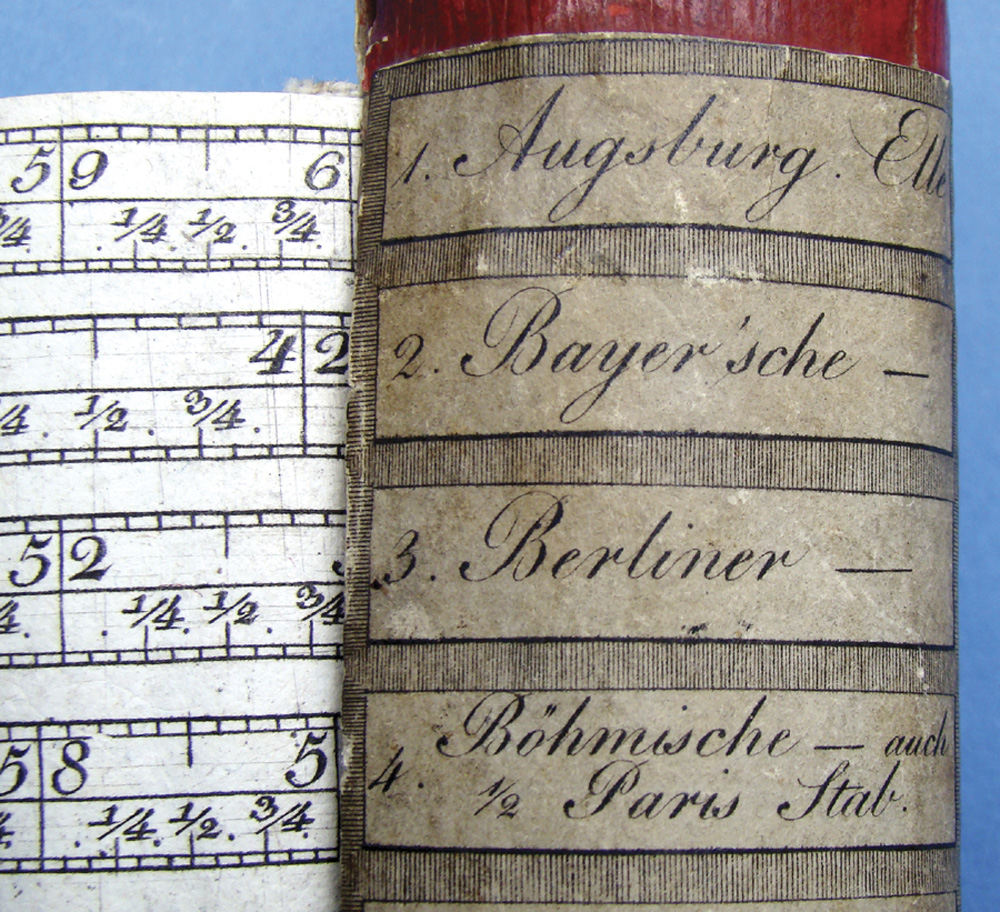 5 9 6
3/4. 1/4 1/2. 3/4.
4 2
1/2. 3/4.
5 2
1/4. 1/2. 3/4
5 8 5
1/4. 1/2. 3/4.
1. Augsburg. Elle
2. Bayer'sche —
3. Berliner —
4. Böhmische — auch
1/2 Paris Stab.